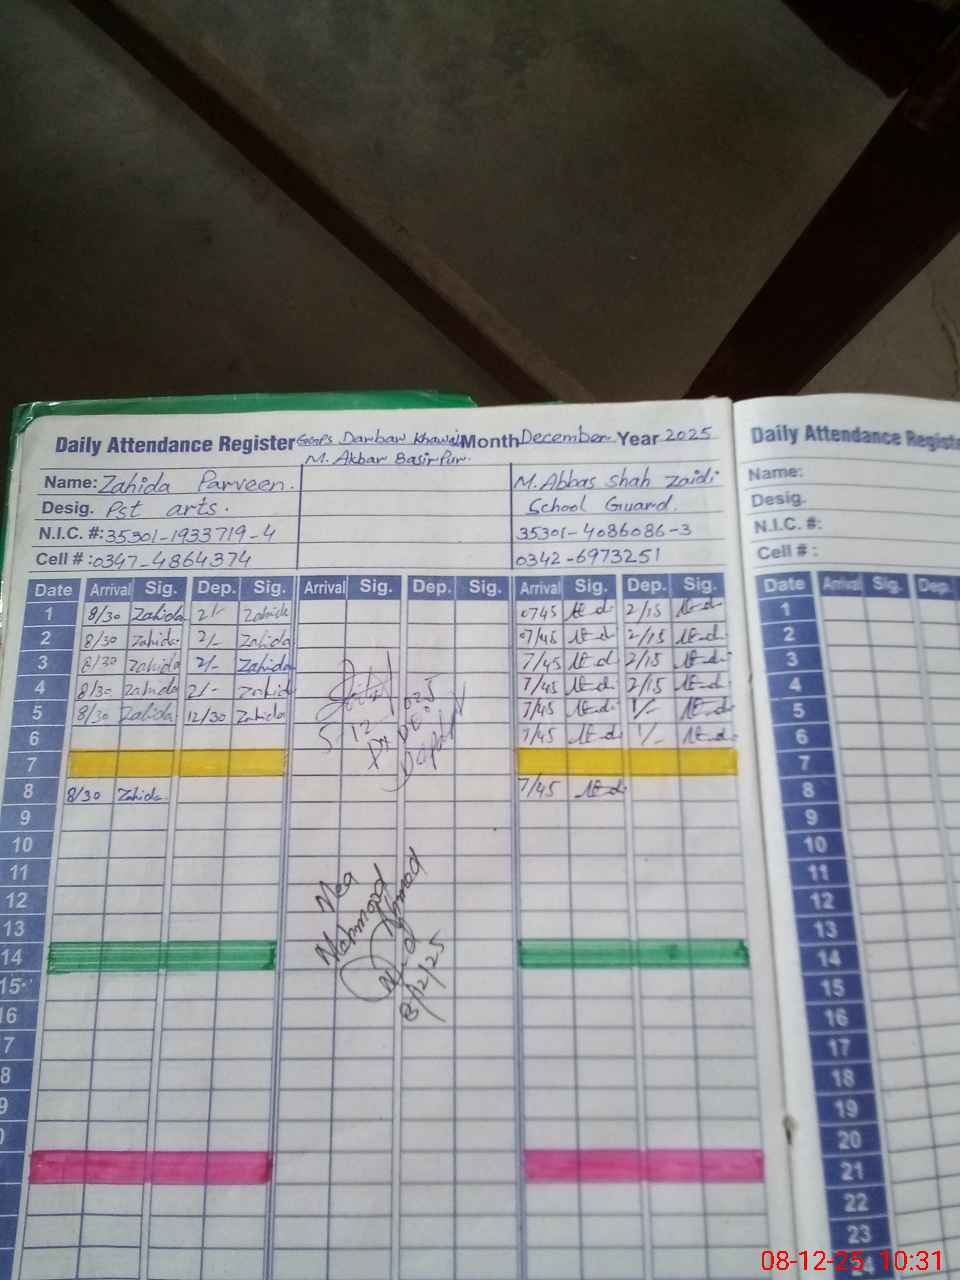 Daily Attendance Register GGMPS Darbar Khawaja Month December Year 2025
M. Akbar Basirpur.
Name: Zahida Parveen. M. Abbas Shah Zaidi
Desig. Pst arts. School Guard.
N.I.C. #: 35301-1933719-4 35301-4086086-3
Cell #: 0347-4864374 0342-6973251
Date Arrival Sig. Dep. Sig. Arrival Sig. Dep. Sig. Arrival Sig. Dep. Sig.
1 8/30 Zahida 2/- Zahida 0745 2/15
2 8/30 Zahida 2/- Zahida 7/45 2/15
3 8/30 Zahida 2/- Zahida 7/45 2/15
4 8/30 Zahida 2/- Zahida 7/45 2/15
5 8/30 Zahida 12/30 Zahida 7/45 1/-
6 7/45 1/-
7
8 8/30 Zahida 7/45
9
10
11
12
13
14
15
16
7
8
9
0
5-12-2025
Mea
Mahmood Ahmad
8/12/25
Daily Attendance Registe
Name:
Desig.
N.I.C. #:
Cell # :
Date Arrival Sig. Dep.
1
2
3
4
5
6
7
8
9
10
11
12
13
14
15
16
17
18
19
20
21
22
23
24
08-12-25 10:31